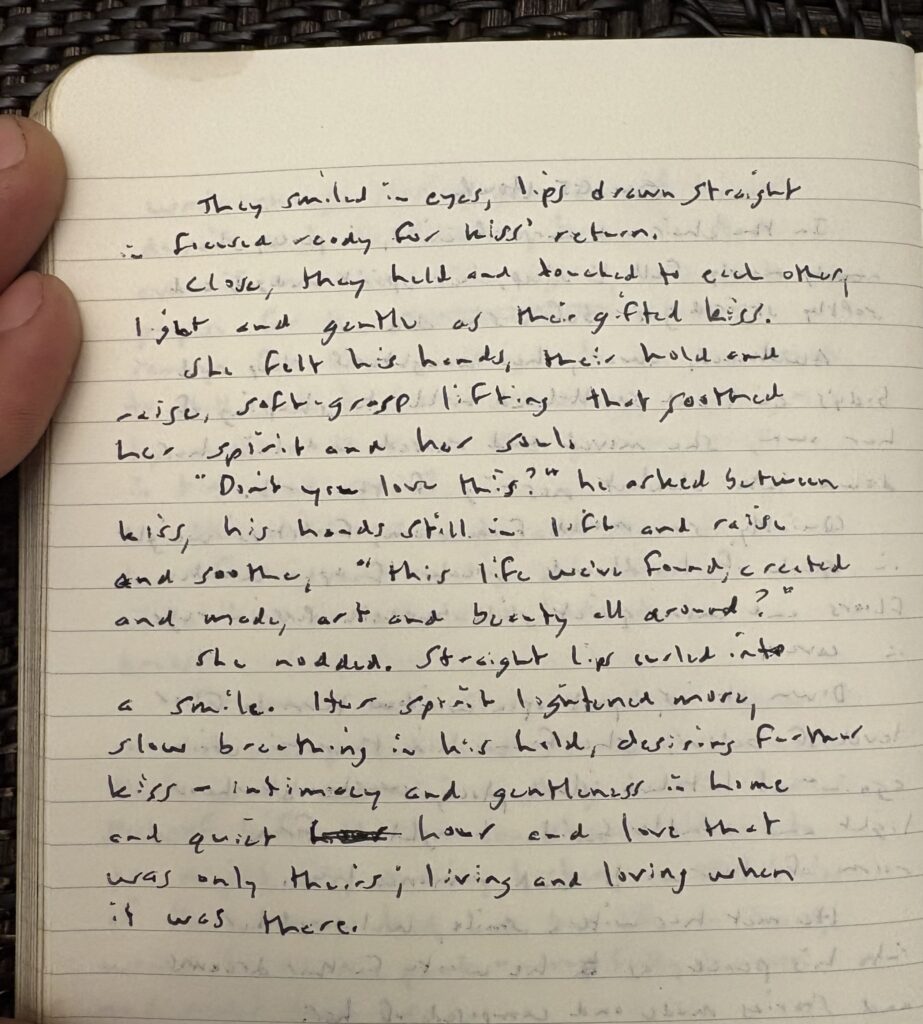 They smiled in eyes, lips drawn straight
in focused ready for kiss' return.
Close, they held and touched to each other,
light and gentle as their gifted kiss.
She felt his hands, their hold and
raise, soft-grasp lifting that soothed
her spirit and her soul.
"Don't you love this?" he asked between
kiss, his hands still in lift and raise
and soothe, "this life we've found, created
and made, art and beauty all around?"
She nodded. Straight lips curled into
a smile. Her spirit lightened more,
slow breathing in his hold, desiring further
kiss - intimacy and gentleness in home
and quiet hour and love that
was only theirs; living and loving when
it was there.